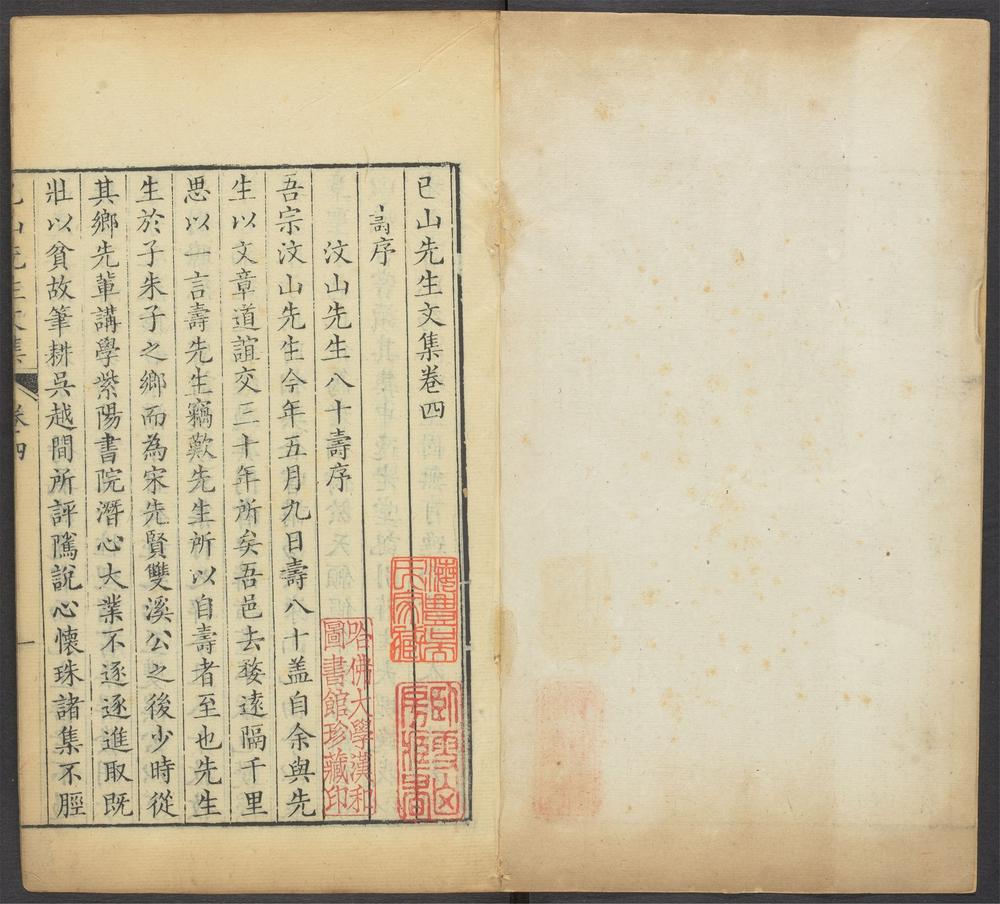 已山先生文集卷四
壽序
汶山先生八十壽序
吾宗汶山先生今年五月九日壽八十盖自余與先
生以文章道誼交三十年所矣吾邑去婺逺隔千里
思以一言壽先生竊歎先生所以自壽者至也先生
生於子朱子之鄉而為宋先賢雙溪公之後少時從
其鄉先輩講學紫陽書院潛心大業不逐逐進取既
壯以貧故筆耕吳越間所評隲說心懷珠諸集不脛
已山先生文集
卷四
一
哈佛大學漢和
圖書館珍藏印
海豐吳
氏家藏
臥雪山
房藏書